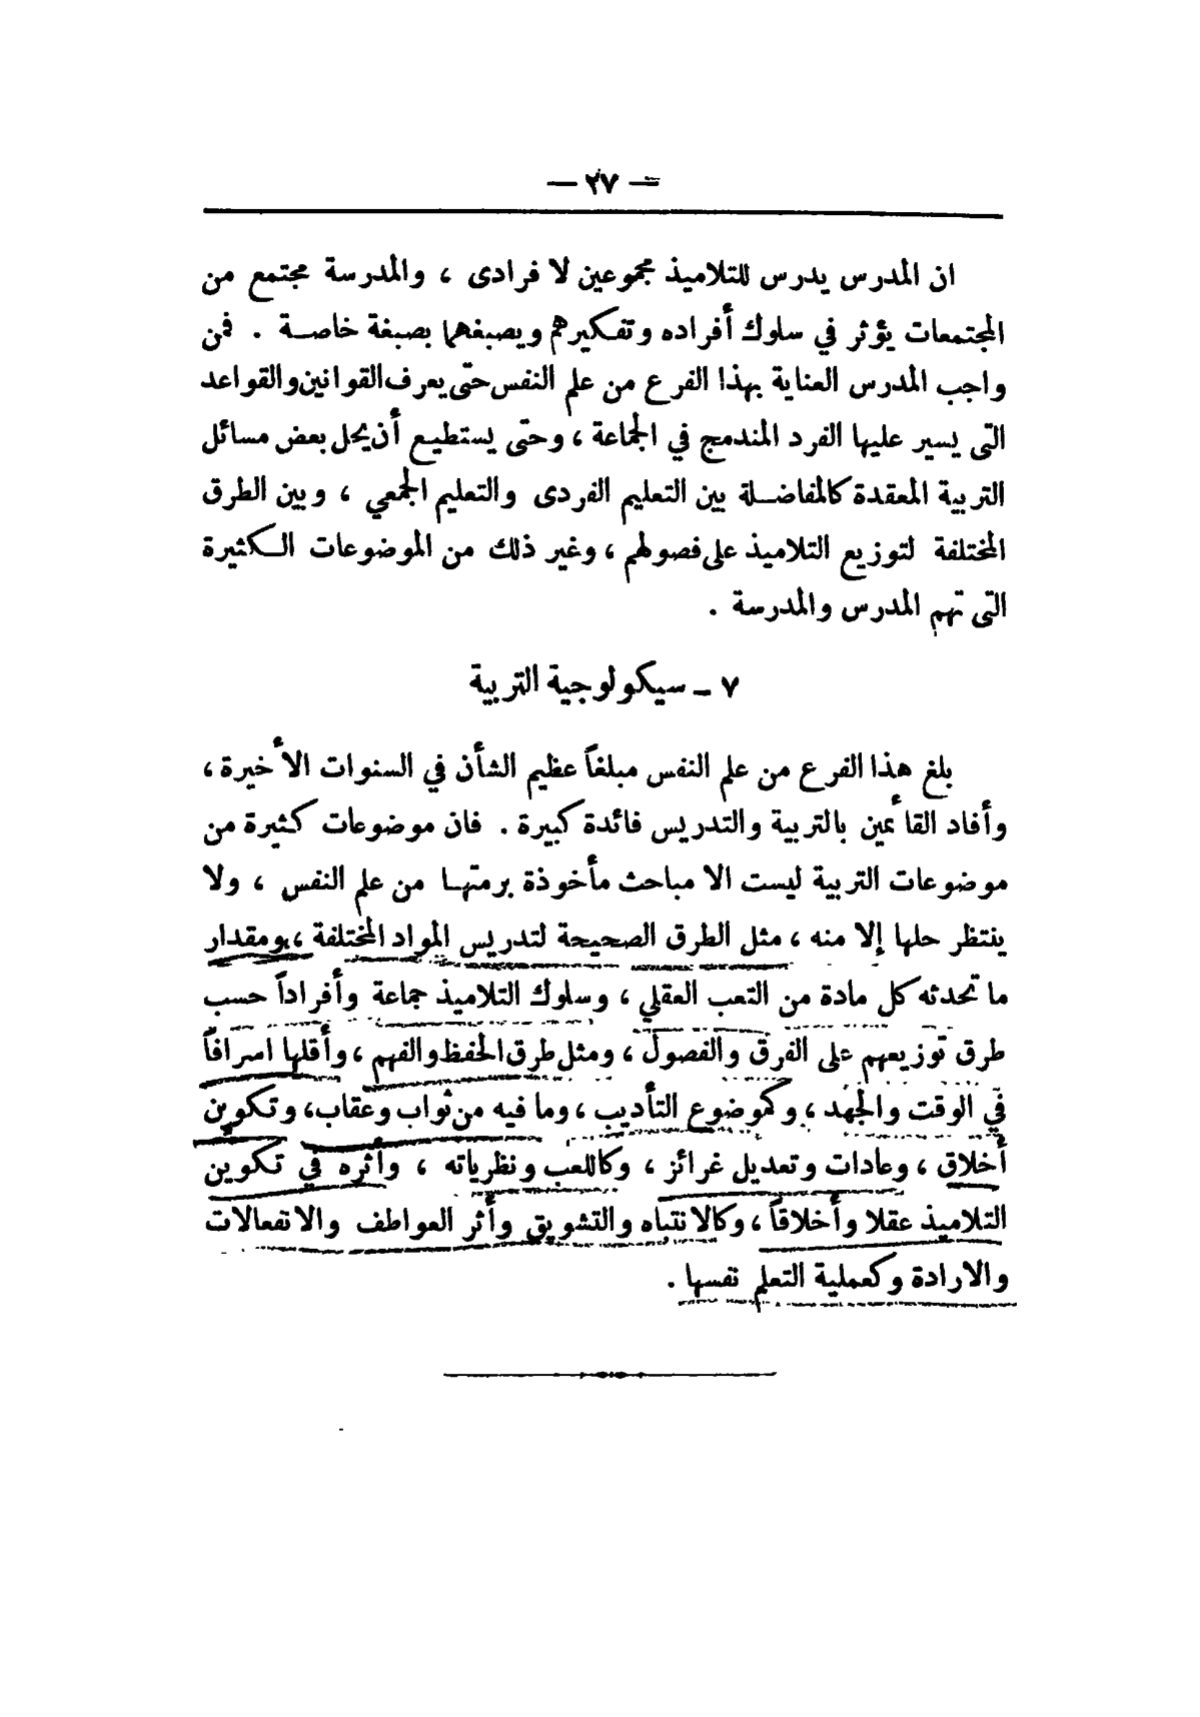 — ٢٧ —
ان المدرس يدرس للتلاميذ مجموعين لا فرادى ، والمدرسة مجتمع من
المجتمعات يؤثر في سلوك أفراده وتفكيرهم ويصبغهما بصبغة خاصة . فمن
واجب المدرس العناية بهذا الفرع من علم النفس حتى يعرف القوانين والقواعد
التى يسير عليها الفرد المندمج في الجماعة ، وحتى يستطيع أن يحل بعض مسائل
التربية المعقدة كالمفاضلة بين التعليم الفردى والتعليم الجمعي ، وبين الطرق
المختلفة لتوزيع التلاميذ على فصولهم ، وغير ذلك من الموضوعات الكثيرة
التى تهم المدرس والمدرسة .
٧ ـ سيكولوجية التربية
بلغ هذا الفرع من علم النفس مبلغاً عظيم الشأن في السنوات الأخيرة ،
وأفاد القائمين بالتربية والتدريس فائدة كبيرة . فان موضوعات كثيرة من
موضوعات التربية ليست الا مباحث مأخوذة برمتها من علم النفس ، ولا
ينتظر حلها إلا منه ، مثل الطرق الصحيحة لتدريس المواد المختلفة ، ومقدار
ما تحدثه كل مادة من التعب العقلي ، وسلوك التلاميذ جماعة وأفراداً حسب
طرق توزيعهم على الفرق والفصول ، ومثل طرق الحفظ والفهم ، وأقلها اسرافاً
في الوقت والجهد ، وكموضوع التأديب ، وما فيه من ثواب وعقاب ، وتكوين
أخلاق ، وعادات وتعديل غرائز ، وكاللعب ونظرياته ، وأثره في تكوين
التلاميذ عقلا وأخلاقاً ، وكالانتباه والتشويق وأثر العواطف والانفعالات
والارادة وكعملية التعلم نفسها .